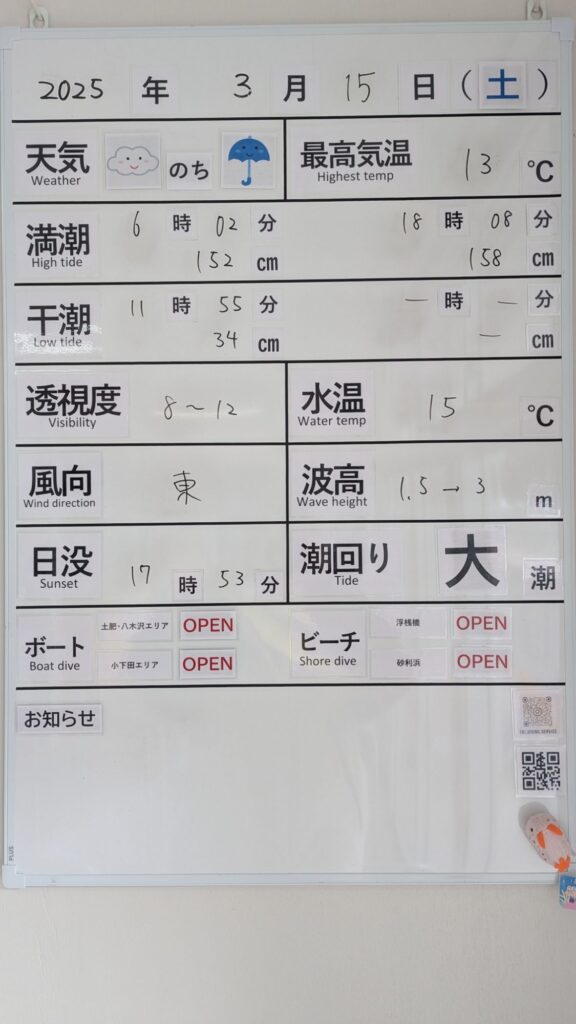 2025 年 3 月 15 日 (土)
天気 のち 最高気温 13 ℃
Weather Highest temp
満潮 6 時 02 分 18 時 08 分
High tide 152 cm 158 cm
干潮 11 時 55 分 — 時 — 分
Low tide 34 cm — cm
透視度 8〜12 水温 15 ℃
Visibility Water temp
風向 東 波高 1.5→3 m
Wind direction Wave height
日没 17 時 53 分 潮回り 大 潮
Sunset Tide
ボート 土肥・八木沢エリア OPEN ビーチ 浮桟橋 OPEN
Boat dive 小下田エリア OPEN Shore dive 砂利浜 OPEN
お知らせ
PLUS